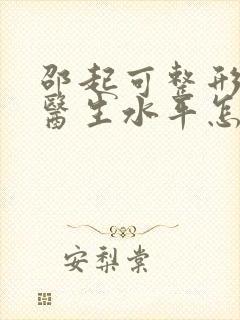 邵起可整形
醫生水平怎
安梨棠